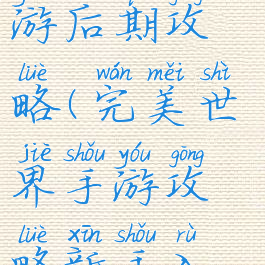 游后期攻
lüè wán měi shì
略(完美世
jiè shǒu yóu gōng
界手游攻
lüè xīn shǒu rù
略新手入